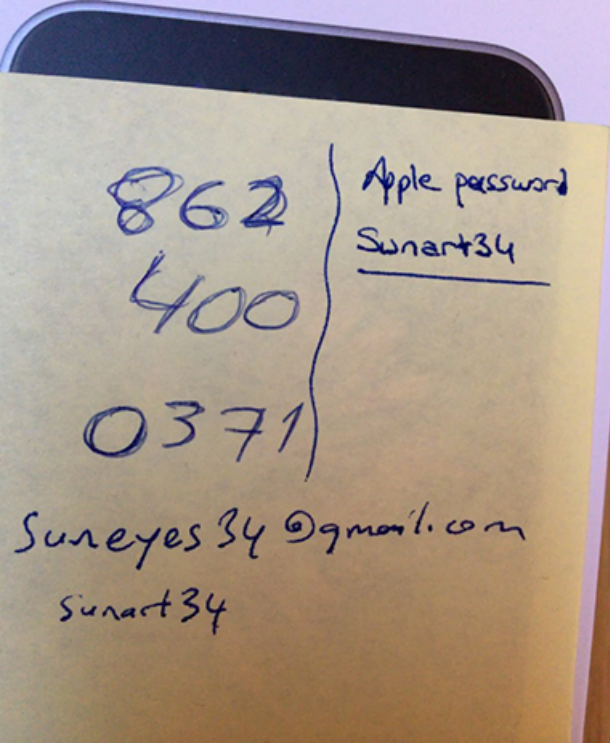 862
400
0371
Apple password
Sunart34
Suneyes34@gmail.com
sunart34